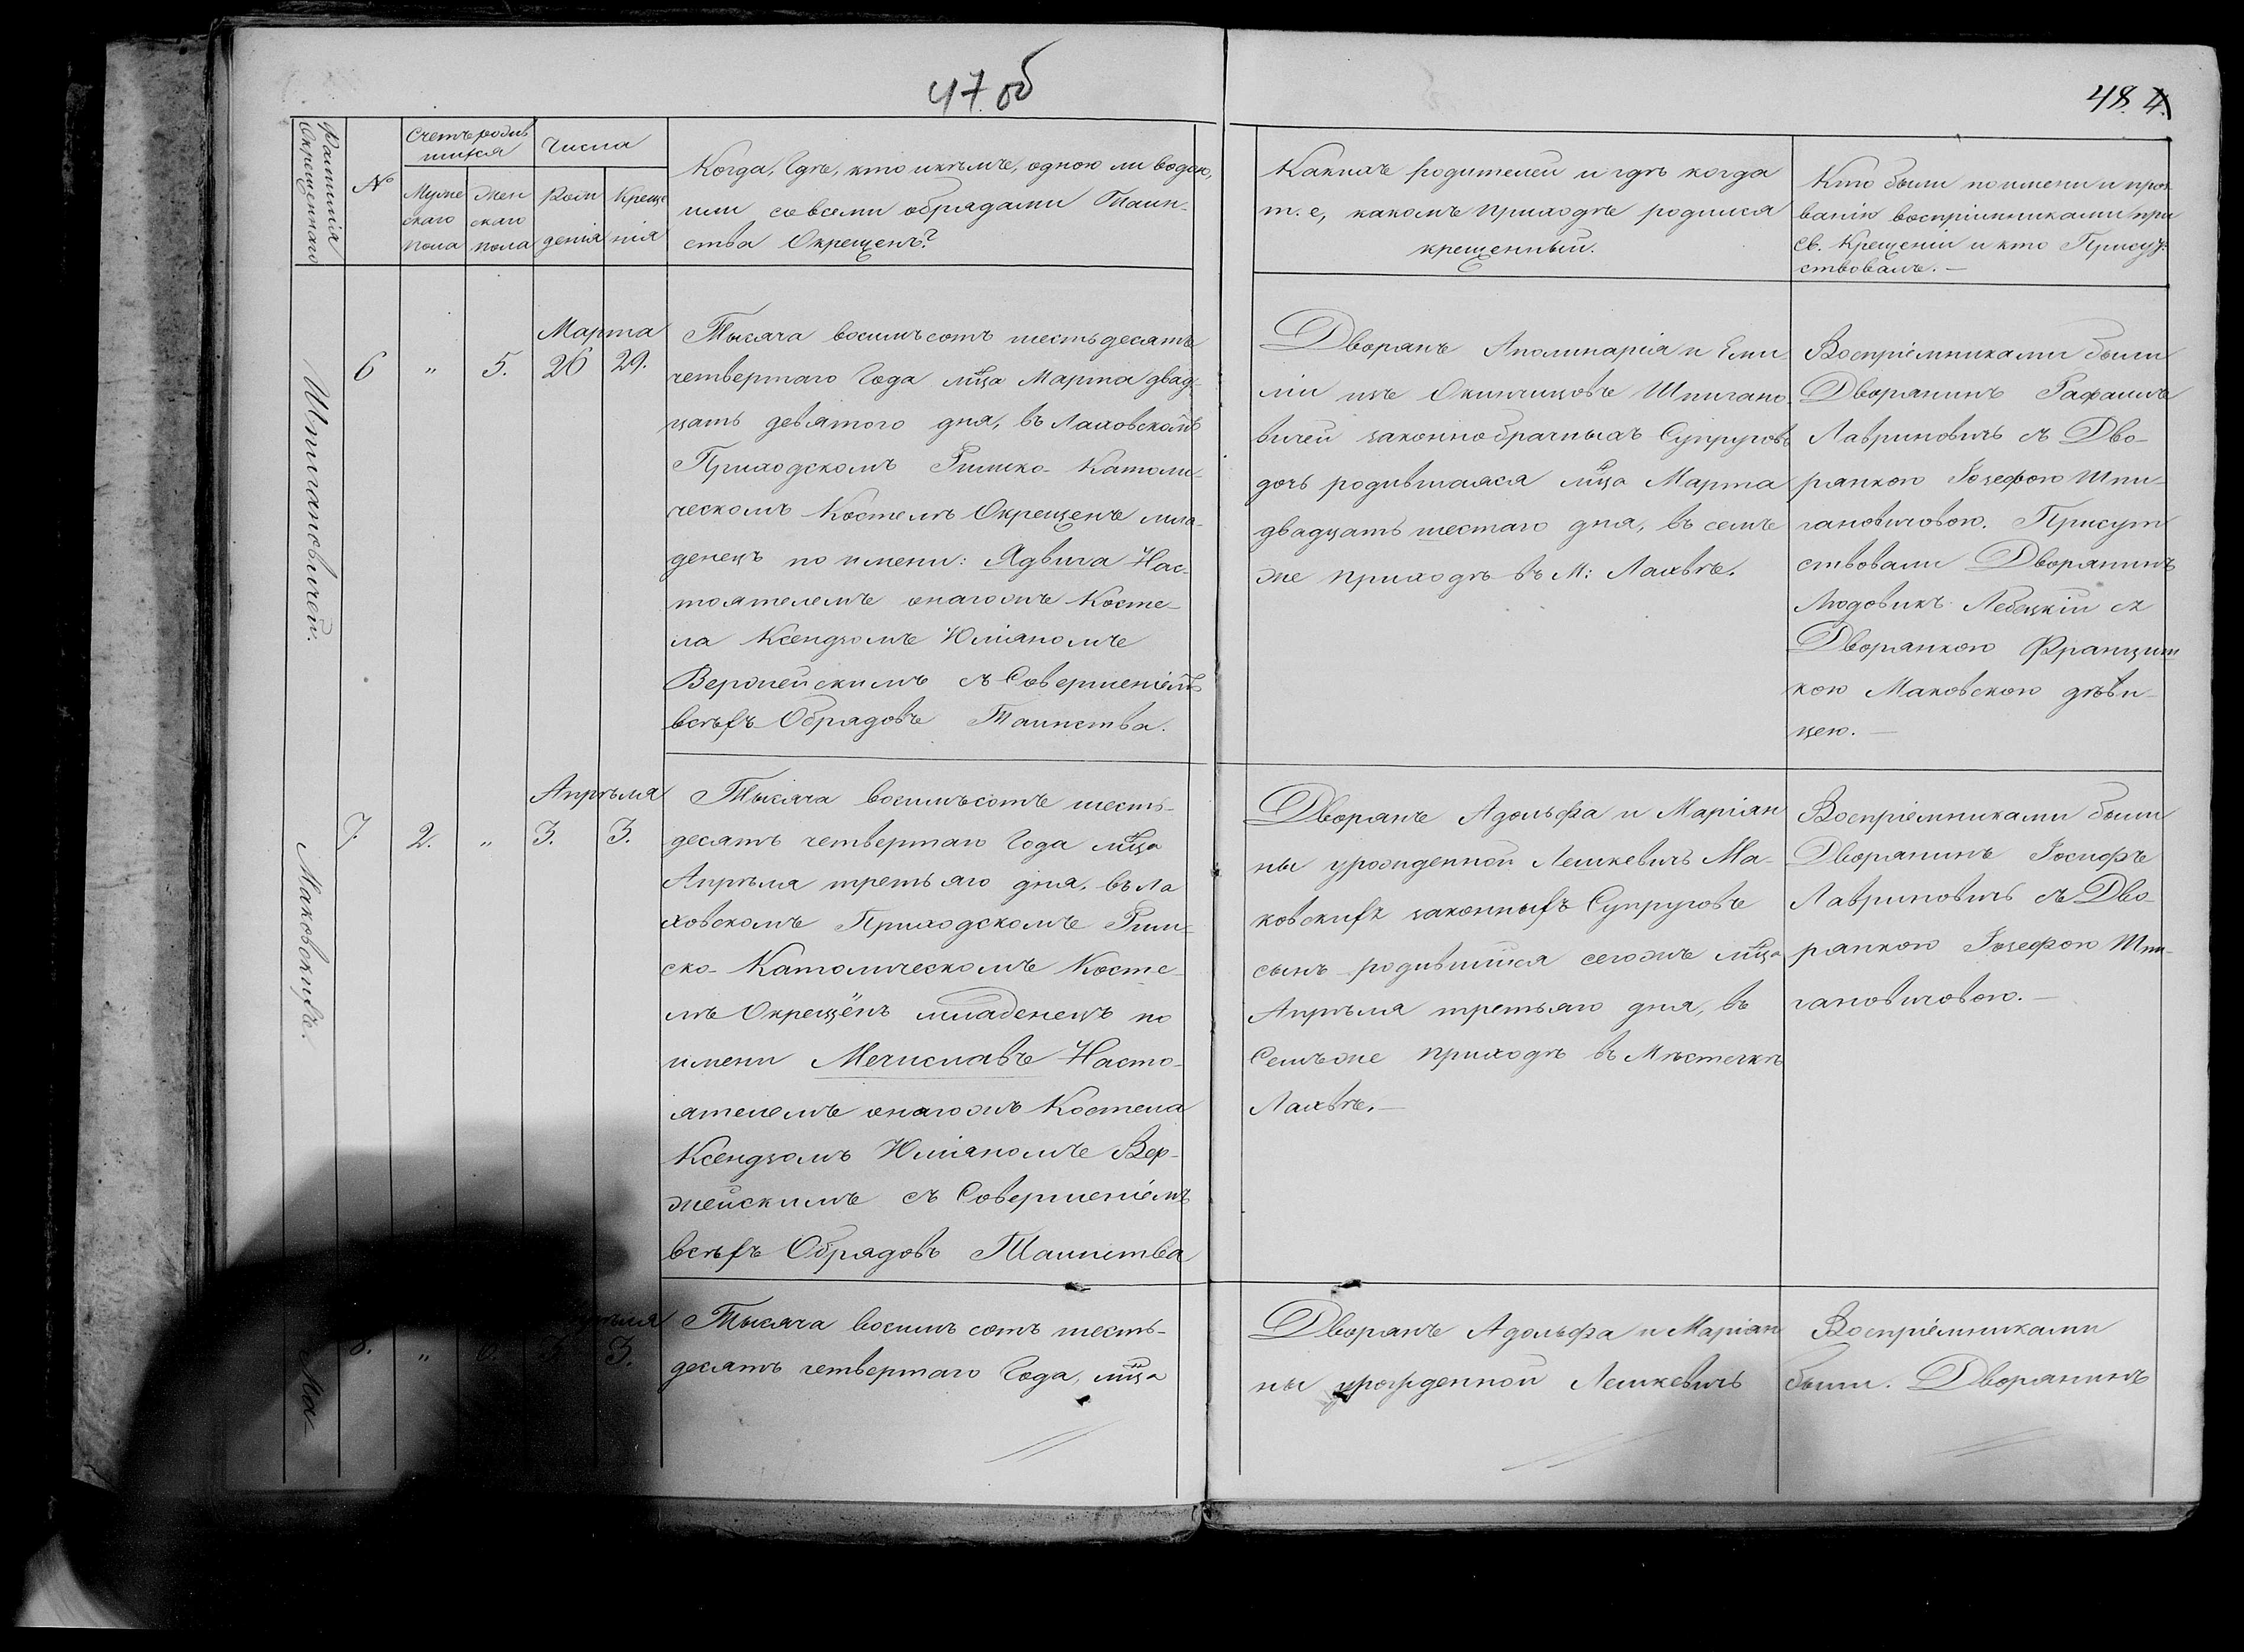 47 об
48. 4.
Фамилія
Окрещеннаго
№
Счетъ родив
шихся
Мужес
скаго
пола
Жен
скаго
пола
Числа
Рож
денія
Креще
нія
Когда, Гдѣ, кто и кѣмъ, одною ли водою,
или со всеми обрядами Таин-
ства Окрещенъ?
Какихъ родителей и гдѣ когда
т. е, какомъ приходѣ родился
крещенный.
Кто были по имени и проз
ванію воспріемниками при
Св. Крещеніи и кто Присуц-
ствовалъ. —
Шпигановичей.
6
"
5.
Марта
26
29.
Тысяча восимъсотъ шестьдесятъ
четвертаго Года мца Марта двад-
цать девятого дня, въ Лаховскомъ
Приходскомъ Римско-Католи-
ческомъ Костелѣ Окрещенъ мла-
денецъ по имени: Ядвига Нас-
тоятелемъ онагожъ Косте-
ла Ксендзомъ Юліаномъ
Вержейскимъ съ Совершеніемъ
всѣхъ Обрядовъ Таинства.
Дворянъ Аполинарія и Еми
ліи изъ Окинчицовъ Шпигано
вичей законнобрачныхъ Супруговъ
дочь родившаяся мца Марта
двадцать шестаго дня, въ семъ
же приходѣ въ М: Лахвѣ.
Воспріемниками были
Дворянинъ Рафаилъ
Лавриновичъ съ Дво-
рянкою Іозефою Шпи-
гановичовою. Присут
ствовали Дворянинъ
Людовикъ Лебецкій съ
Дворянкою Франциш
кою Маковскою дѣви-
цею. —
Маковскихъ.
7.
2.
"
Апрѣля
3.
3.
Тысяча восимъсотъ шесть-
десятъ четвертаго Года мца
Апрѣля третьяго дня, въ Ла
ховскомъ Приходскомъ Рим-
ско-Католическомъ Косте-
лѣ Окрещёнъ младенецъ по
имени Мечиславъ Насто-
ятелемъ онагожъ Костела
Ксендзомъ Юліаномъ Вер-
жейскимъ съ Совершеніемъ
всѣхъ Обрядовъ Таинства
Дворянъ Адольфа и Маріан
ны урожденной Лешкевичъ Ма-
ковскихъ законныхъ Супруговъ
сынъ родившійся сегожъ мца
Апрѣля третьяго дня, въ
Семъ же приходѣ въ Мѣстечкѣ
Лахвѣ. —
Воспріемниками были
Дворянинъ Іосифъ
Лавриновичъ съ Дво-
рянкою Іозефою Шпи-
гановичовою. —
Ма-
8.
"
6.
3.
3.
Тысяча восимъ сотъ шесть-
десятъ четвертаго Года, мца
Дворянъ Адольфа и Маріан
ны урожденной Лешкевичъ
Воспріемниками
были. Дворянинъ